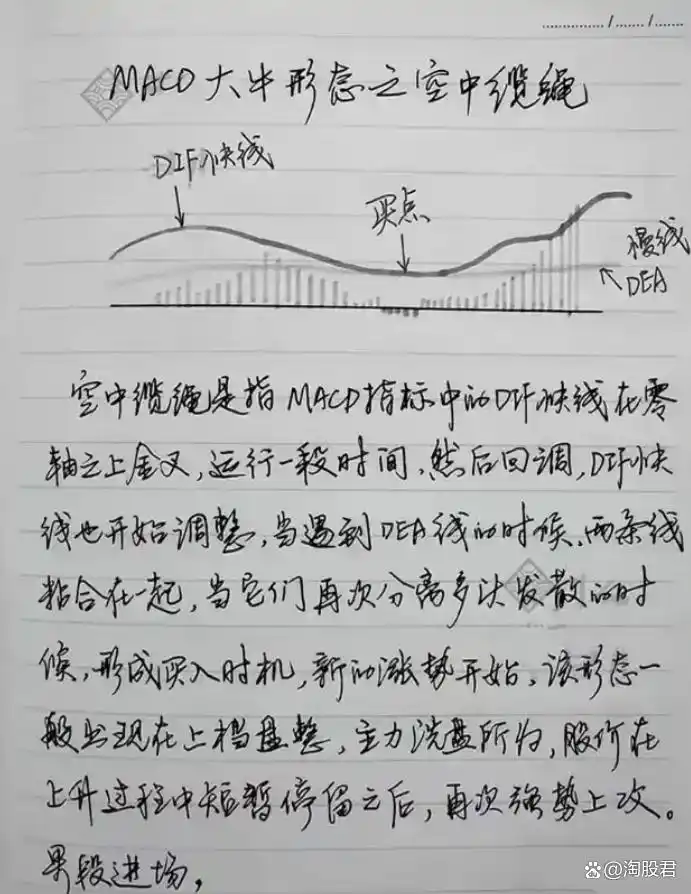 MACD大牛形态之空中缆绳
DIF快线
买点
慢线
DEA
空中缆绳是指MACD指标中的DIF快线在零
轴之上金叉,运行一段时间,然后回调,DIF快
线也开始调整,当遇到DEA线的时候,两条线
粘合在一起,当它们再次分离多头发散的时
候,形成买入时机,新的涨势开始,该形态一
般出现在上档盘整,主力洗盘所为,股价在
上升过程中短暂停留之后,再次强势上攻。
果段进场,
百家号/淘股君